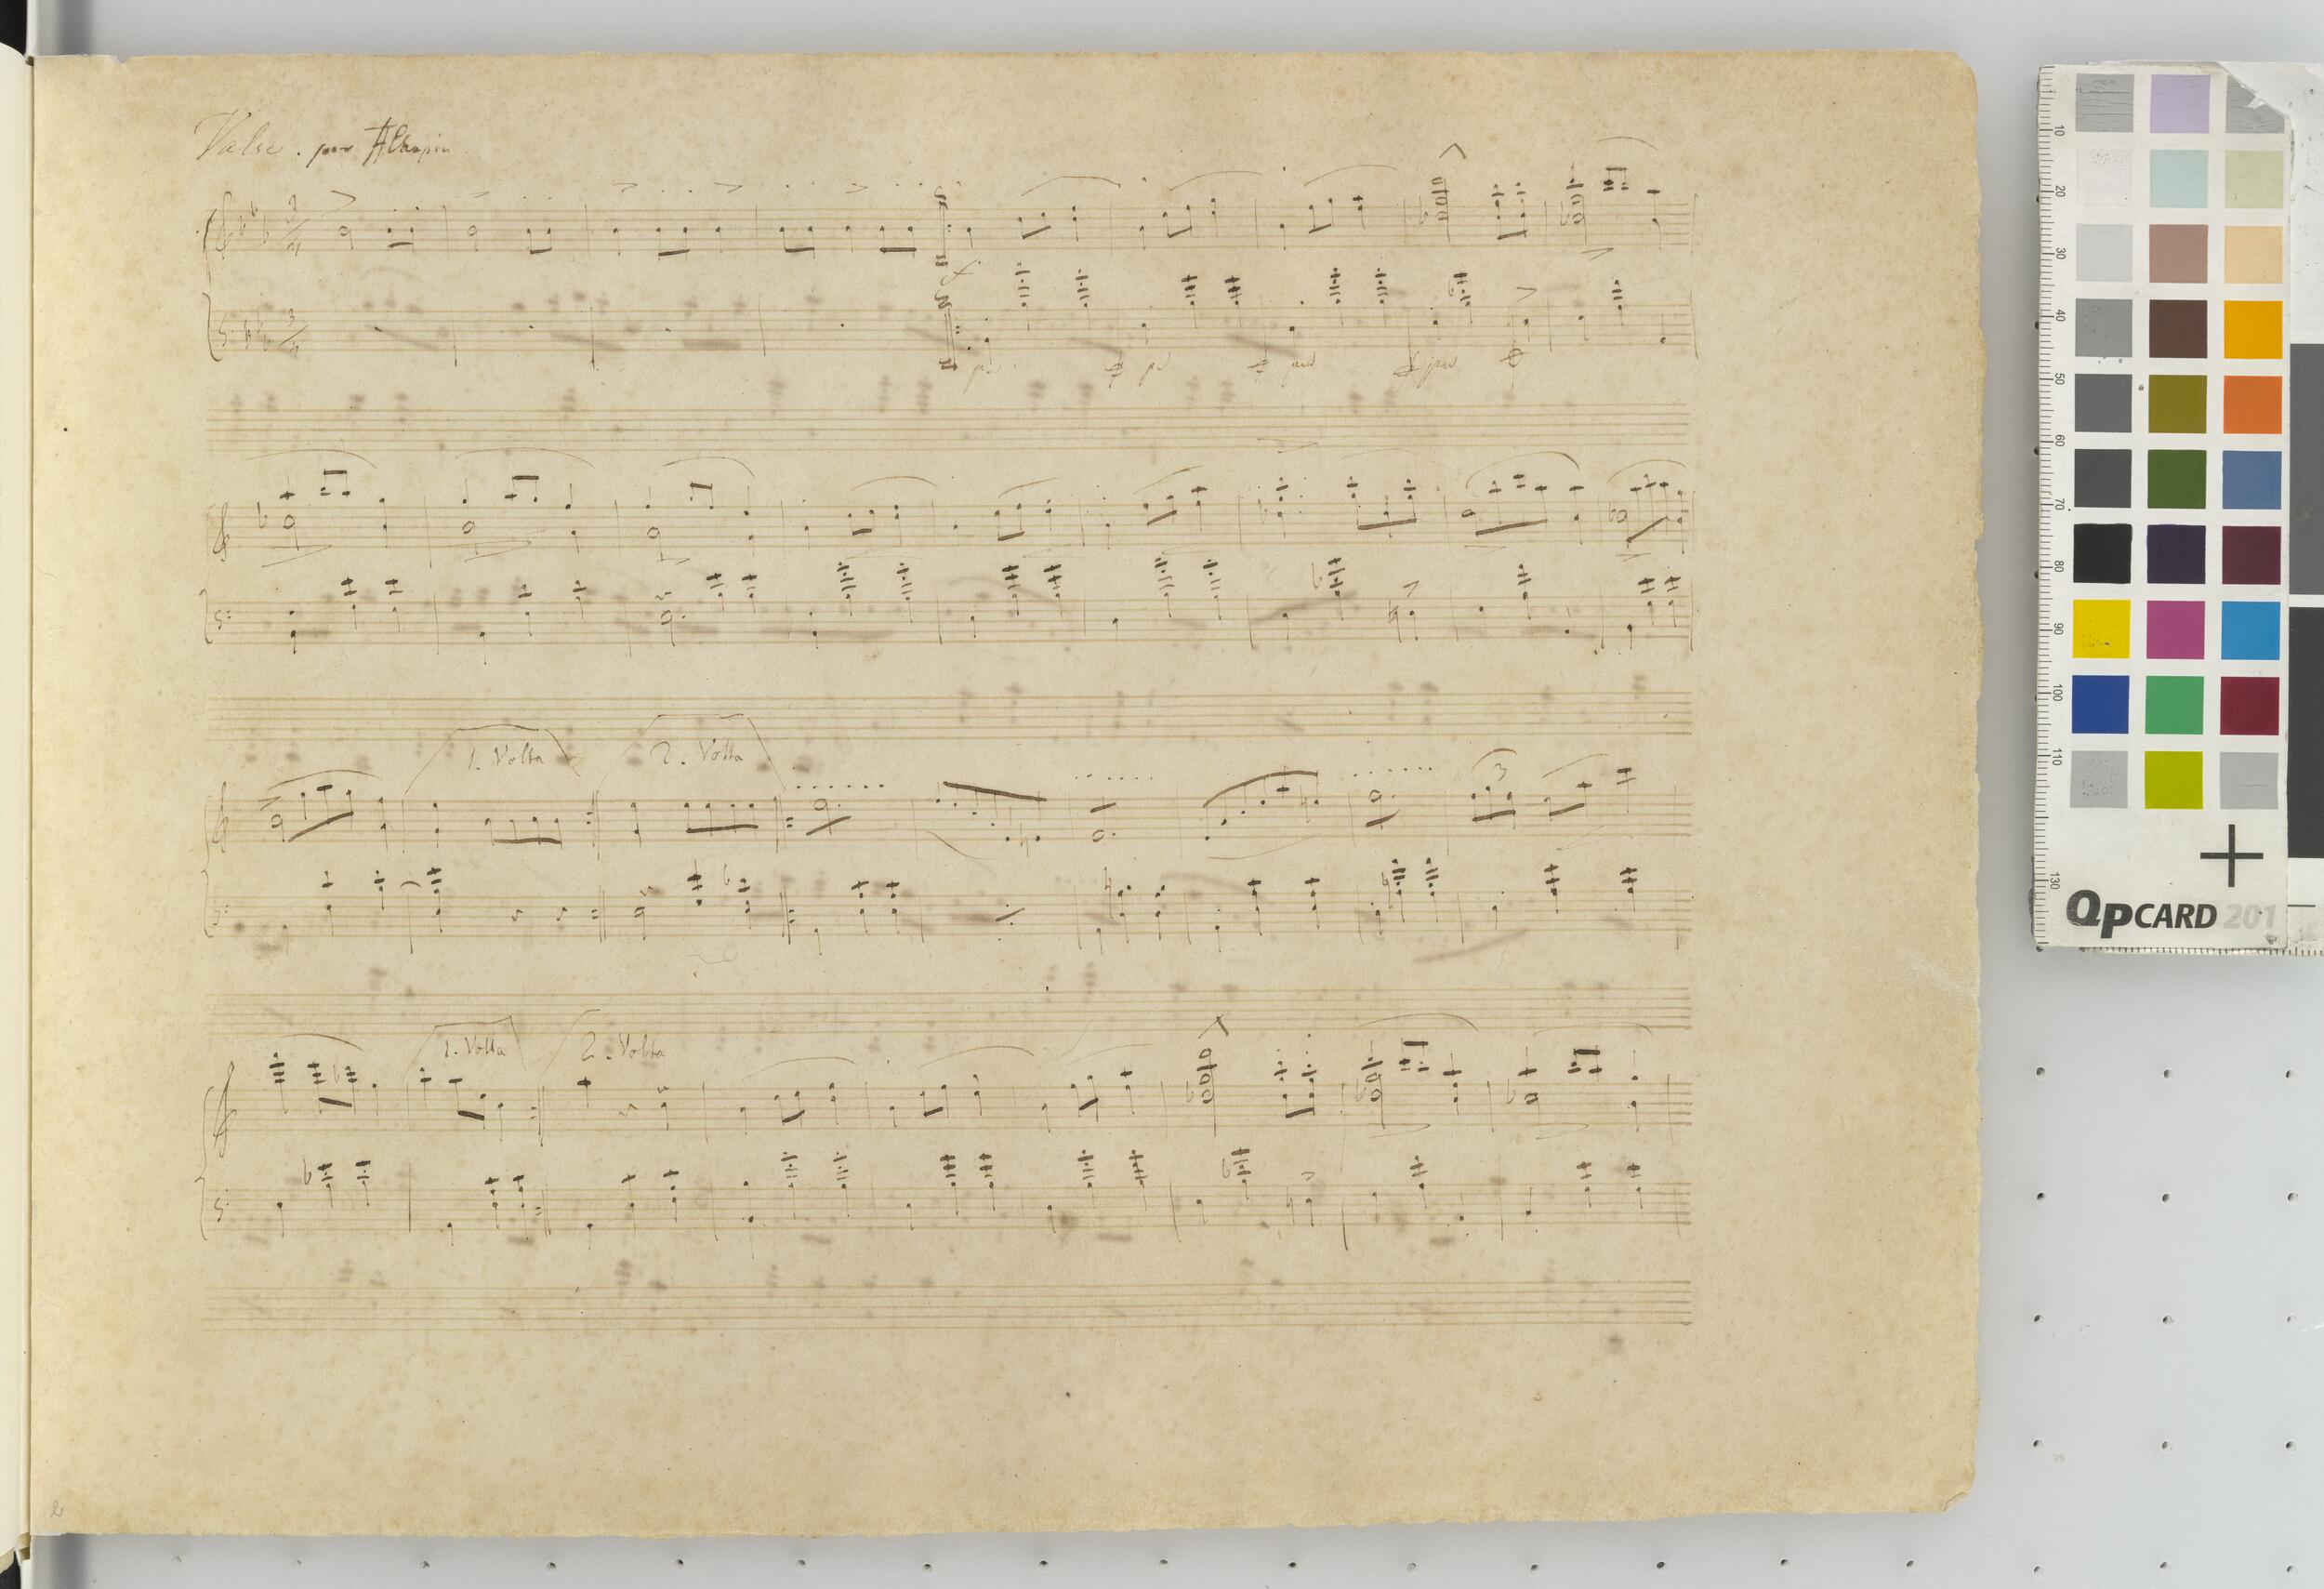 Valse. par FChopin
3/4
f
3/4
1. Volta
2. Volta
3
1. Volta
2. Volta
2
10
20
30
40
50
60
70
80
90
100
110
130
QpCARD 201